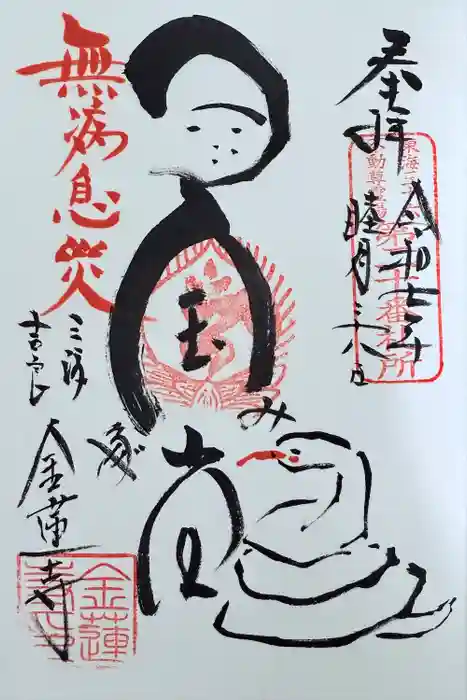 奉拝
令和七年
睦月 六日
東海三十六
不動尊霊場
第二十番札所
玉
み
堂
無病息災
三河
吉良
金蓮寺
金蓮
寺